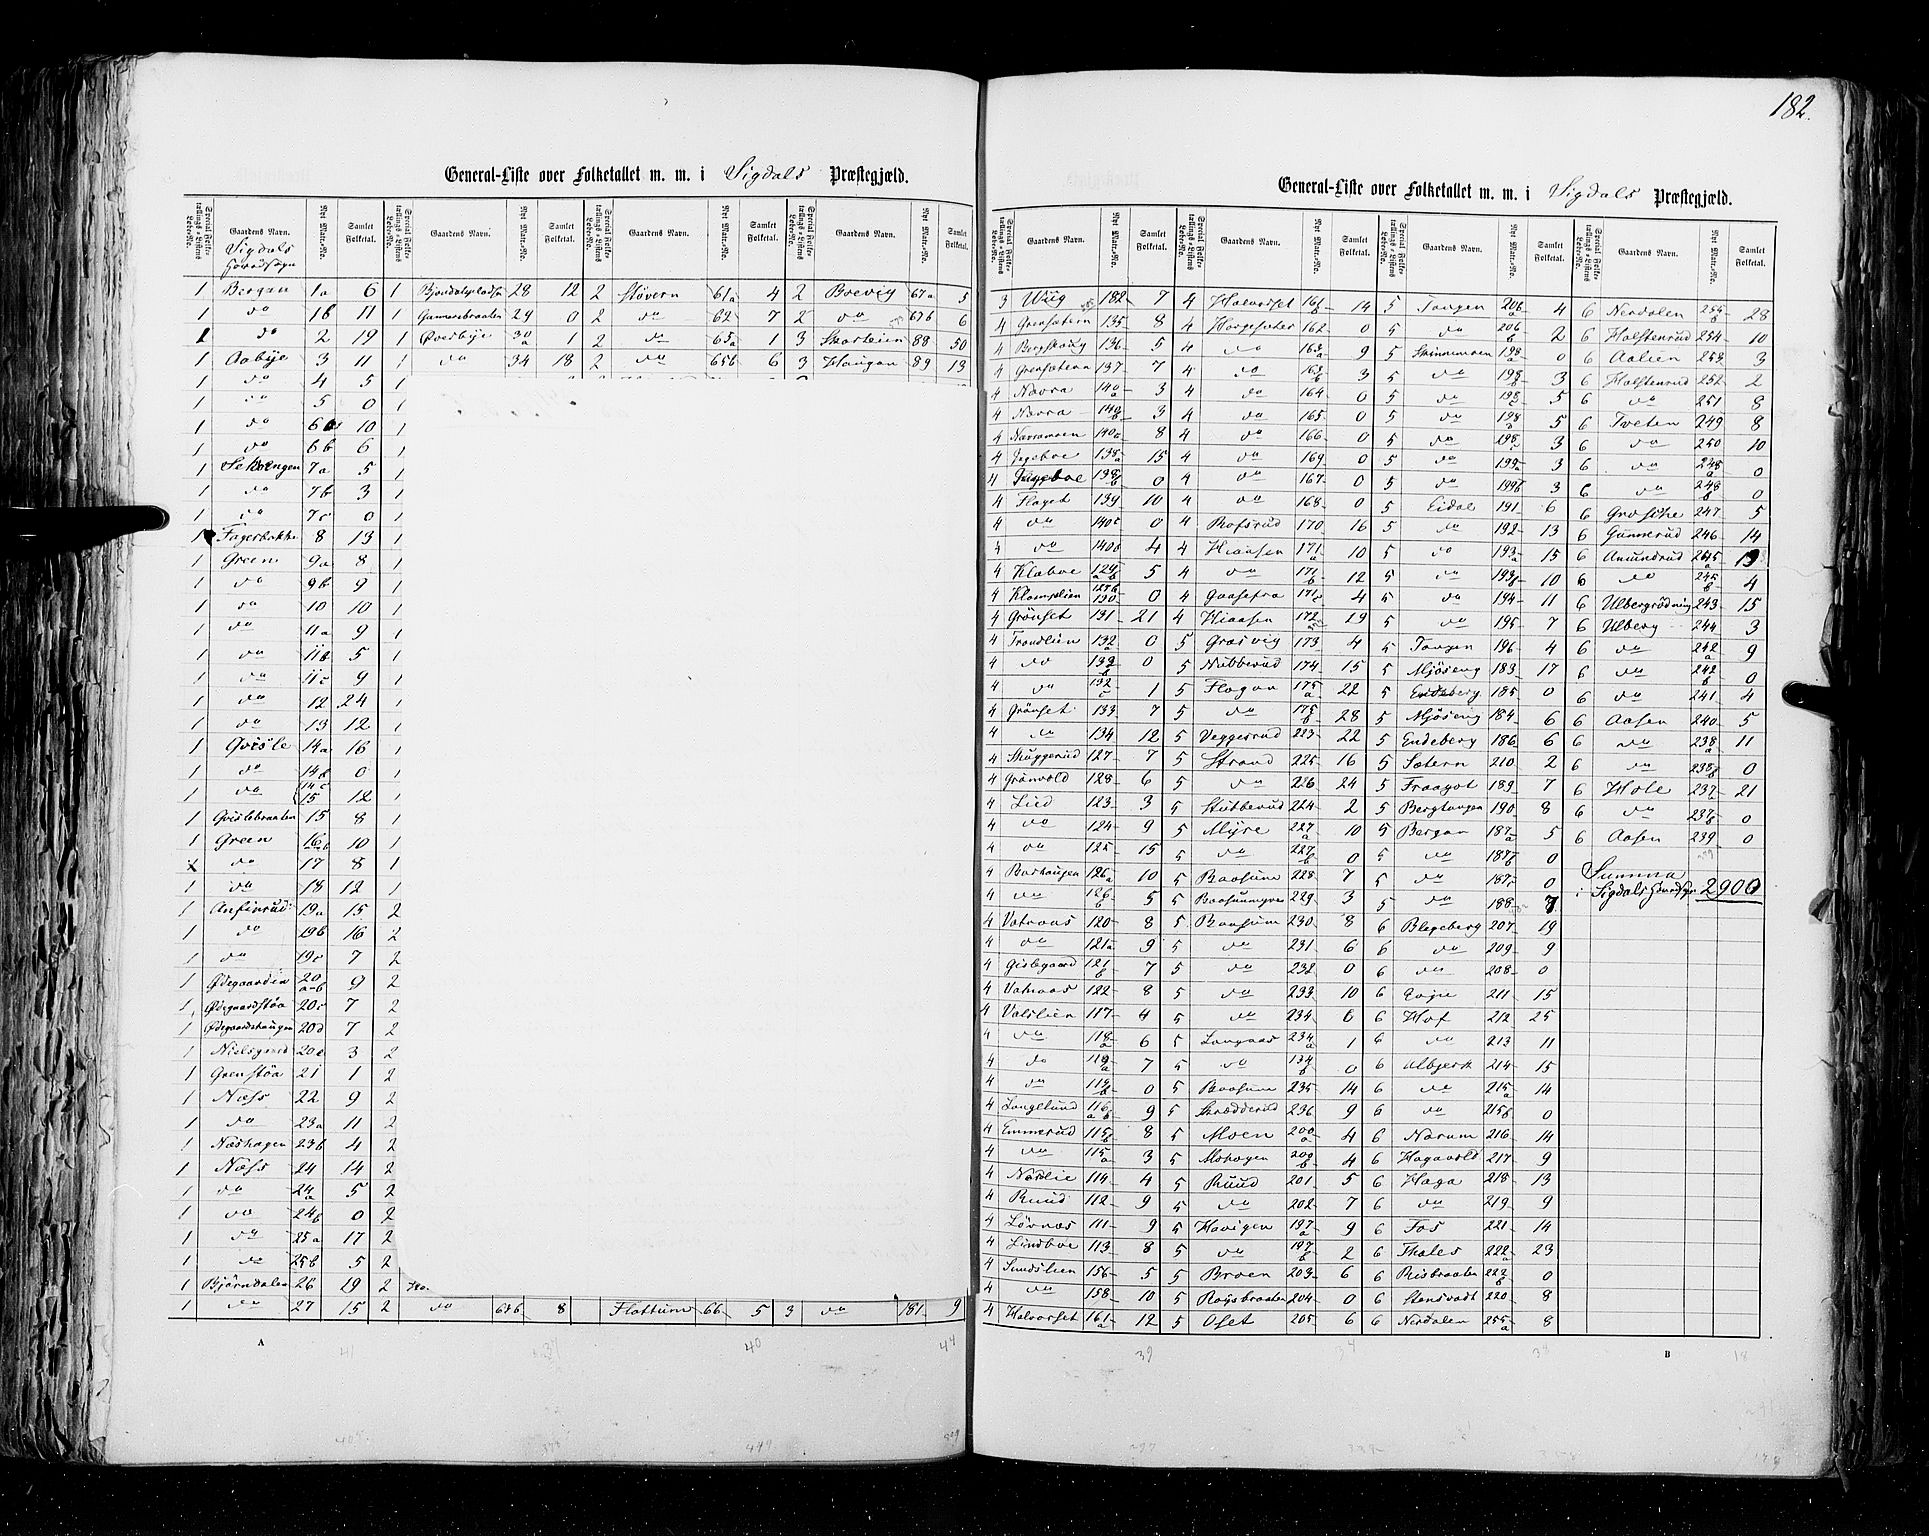 182.
General-Liste over Folketallet m. m. i Sigdals Præstegjæld.
Special Folketællings-Listens Lobe-No. Gaardens Navn. Nyt Matr.-No. Samlet Folketal. Special Folketællings-Listens Lobe-No. Gaardens Navn. Nyt Matr.-No. Samlet Folketal. Special Folketællings-Listens Lobe-No. Gaardens Navn. Nyt Matr.-No. Samlet Folketal. Special Folketællings-Listens Lobe-No. Gaardens Navn. Nyt Matr.-No. Samlet Folketal.
Sigdals
Hovedsogn
1 Bergan 1a 6 1 28 12 2 Støvern 61a 4 2 Brevig 67a 5
1 do 1b 11 1 Gunnersbraaten 29 0 2 do 62 7 2 do 67b 6
1 do 2 19 1 Øvedbye 30a 1 2 do 65a 1 3 88 50
1 Aabye 3 11 1 do 34 18 2 do 65b 6 3 Haugan 89 13
1 do 4 5 1
1 do 5 0 1
1 do 6a 10 1
1 do 6b 6 1
1 7a 5 1
1 do 7b 3 1
1 do 7c 0 1
1 Fagerbakke 8 13 1
1 Green 9a 8 1
1 do 9b 9 1
1 do 10 10 1
1 do 11a 9 1
1 do 11b 5 1
1 do 11c 9 1
1 do 12 24 1
1 do 13 12 1
1 Qvisle 14a 16 1
1 do 14b 0 1
1 do 14c 15 12 1
1 Qvislebraaten 15 8 1
1 Green 16ab 10 1
x do 17 8 1
1 do 18 12 1
1 Anfinrud 19a 15 2
1 do 19b 16 2
1 do 19c 7 2
1 Ødegaarden 20a-b 9 2
1 Ødegaardstøa 20c 7 2
1 Ødegaardshaugen 20d 7 2
1 Nielsgaard 20e 3 2
1 Grenstøa 21 1 2
1 Næss 22 9 2
1 do 23a 11 2
1 Næshagen 23b 4 2
1 Næss 24 14 2
1 do 24a 5 2
1 do 24b 0 2
1 do 25a 17 2
1 do 25b 5 2
1 Bjørndalen 26 19 2
1 do 27 15 2 do 8 Flattum 66 5 3 do 181 9
A
General-Liste over Folketallet m. m. i Sigdals Præstegjæld.
Special Folketællings-Listens Lobe-No. Gaardens Navn. Nyt Matr.-No. Samlet Folketal. Special Folketællings-Listens Lobe-No. Gaardens Navn. Nyt Matr.-No. Samlet Folketal. Special Folketællings-Listens Lobe-No. Gaardens Navn. Nyt Matr.-No. Samlet Folketal. Special Folketællings-Listens Lobe-No. Gaardens Navn. Nyt Matr.-No. Samlet Folketal.
3 Wiig 182 7 4 Halvorset 161b 14 5 Tangen 206a 4 6 Nerdalen 255b 28
4 Grensætern 135 8 4 Horgesæter 162 0 5 do 206b 2 6 Holstenrud 254 10
4 Bergstøug 136 5 4 do 163a 9 5 Skinnemoen 198a 0 6 Aalien 253 3
4 Grensætern 137 7 4 do 163b 3 5 do 198b 3 6 Holstenrud 252 2
4 Navra 140a 3 4 do 164 0 5 do 198c 5 6 do 251 8
4 Navra 140b 3 4 do 165 0 5 do 198 5 6 Tveten 249 8
4 Navramoen 140c 8 4 do 166 0 5 do 198 3 6 do 250 10
4 Ingeboe 138a 15 4 do 169 0 5 do 199a 3 6 do 248a 0
4 Ingeboe 138b 0 4 do 167 0 5 do 199b 3 6 do 248b 0
4 Flaget 139 10 4 do 168 0 5 Eidal 191 6 6 Grosche 247 5
4 do 140c 0 4 Rofsrud 170 16 5 do 192 13 6 Gunnerud 246 14
4 do 140d 4 4 Hiaasen 171a 10 5 do 193a 15 6 Amundrud 245a 13
4 Kloboe 129ab 5 4 do 171b 12 5 do 193b 10 6 do 245b 4
4 130 0 4 Gaasefra 171c 4 5 do 194 11 6 Ulbergrødning 243 15
4 Grønset 131 21 4 Hiaasen 172 19 5 do 195 7 6 Ulberg 244 3
4 Trondlien 132a 0 5 Græsvig 173 4 5 Tangen 196 4 6 do 242a 9
4 do 132b 0 5 Nubberud 174 15 5 Mjøseng 183 17 6 do 242b 0
4 do 132c 1 5 Flagan 175a 22 5 Endeberg 185 0 6 do 241 4
4 Grønset 133 7 5 do 175b 28 5 Mjøseng 184 6 6 Aasen 240 5
4 do 134 12 5 Veggesrud 223 22 5 Endeberg 186 6 6 do 238a 11
4 Skuggerud 127 7 5 Strand 225 16 5 Sætern 210 2 6 do 238b 0
4 Grønvold 128 6 5 do 226 24 5 Fraagot 189 7 6 Hole 237a 21
4 Lied 123 3 5 Stubberud 224 2 5 Bergtangen 190 8 6 do 237b 0
4 do 124 9 5 Myre 227a 10 5 Bergan 187a 5 6 Aasen 239 0
4 do 125 15 5 do 227b 0 5 do 187b 0
4 Barhaugen 126a 10 5 Baasum 228 7 5 do 187c 0 Summa
4 do 126b 5 5 Baasummyren 229 3 5 do 188 7 i Sigdals Hovedsogn 2900
4 Vatnaas 120 8 5 Baasum 230 8 6 Blegeberg 207 19
4 do 121a 9 5 do 231 6 6 do 209 9
4 Gislegaard 121b 7 5 do 232 0 6 do 208 0
4 Vatnaas 122 8 5 do 233 10 6 Evje 211 15
4 Valslien 117 4 5 do 234 6 6 Hof 212 25
4 do 118a 6 5 Langaas 234a 1 6 do 213 11
4 do 119a 7 5 do 134b 0 6 Albjerk 214 15
4 do 119b 0 5 Baasum 235 14 6 do 215a 14
4 Langelund 116ab 9 5 Skrædderud 236 9 6 do 215b 0
4 Emmerud 115b 8 5 Moen 200a 4 6 Narum 216 14
4 do 115a 3 5 Mohagen 200b 4 6 Hagavold 217 9
4 Nordlie 114 4 5 Ruud 201 5 6 Haga 218 13
4 Ruud 112 9 5 do 202 7 6 do 219 9
4 Løvnæs 111 9 5 Havigen 197a 9 6 Fos 221 14
4 Lindboe 113 8 5 do 197b 2 6 Thales 222a 23
4 Sundslien 156 5 5 Broen 203 6 6 Risbraaten 222b 0
4 do 158 10 5 Røysbraaten 204 0 6 Stensvadt 220 8
4 Halvorset 161a 12 5 Oset 205 6 6 Nerdalen 255a 8
B
41 40 44 39 34 38 18